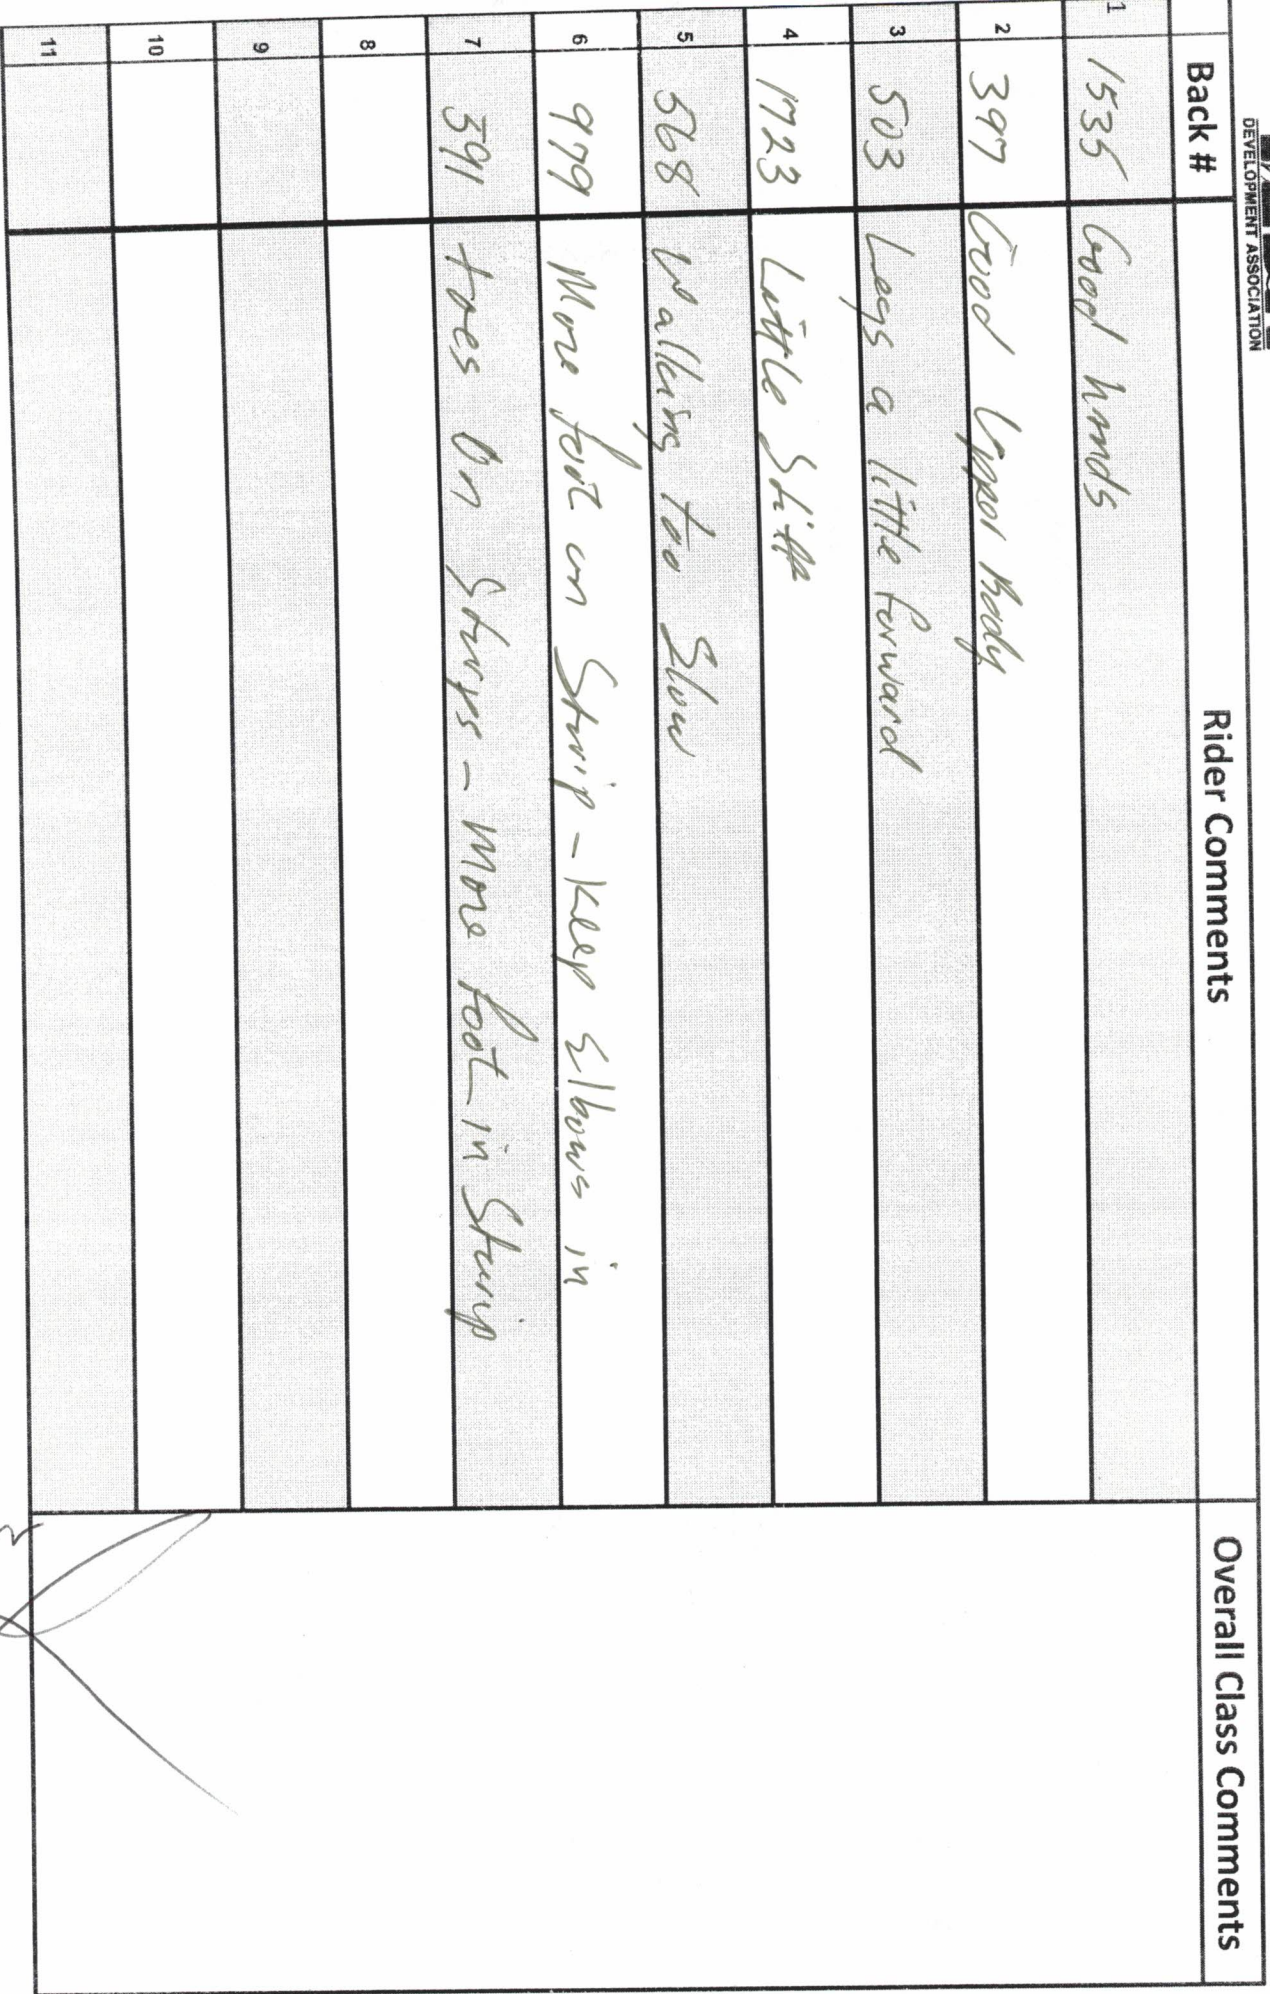 DEVELOPMENT ASSOCIATION
Back # Rider Comments Overall Class Comments
1 1535 Good hands
2 397 Good Upper Body
3 503 Legs a little forward
4 1723 Little Stiff
5 568 Walking too Slow
6 979 More foot in Strip - Keep Elbows in
7 391 toes On Strips - More foot in Sturrip
8
9
10
11